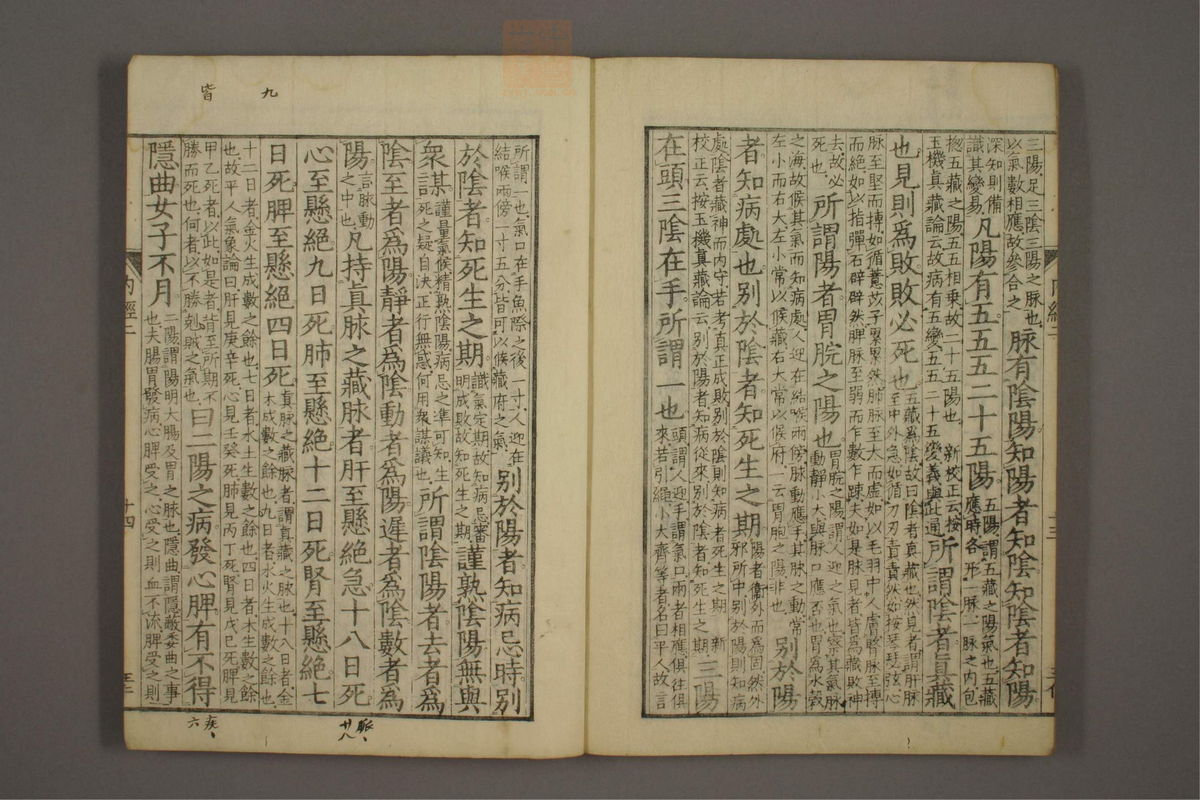 三陽足三陰三陽之脉也
以氣數相應故參合之
脉有陰陽知陽者知陰知陰者知陽
深知則備
識其變易
凡陽有五五五二十五陽
五陽謂五藏之陽氣也五藏
應時各形一脉一脉之内包
捴五藏之陽五五相乗故二十五陽也 新校正云按
玉機真藏論云故病有五變五五二十五變義與此通
所謂陰者真藏
也見則為敗敗必死也
五藏為陰故曰陰者真藏也然見者謂肝脉
至中外急如循刀刃責責然如按琴瑟弦心
脉至堅而搏如循薏苡子累累然肺脉至大而虛如以毛羽中人膚腎脉至搏
而絶如以指彈石辟辟然脾脉至弱而乍數乍踈夫如是脉見者皆為藏敗神
去故必
死也
所謂陽者胃脘之陽也
胃脘之陽謂人迎之氣也察其氣脉
動靜小大與脉口應否也胃為水榖
之海故候其氣而知病處人迎在結喉兩傍脉動應手其脉之動常
左小而右大左小常以候藏右大常以候府一云胃胞之陽非也
別於陽
者知病處也別於陰者知死生之期
陽者衞外而為固然外
邪所中別於陽則知病
處陰者藏神而内守若考真正成敗別於陰則知病者死生之期 新
校正云按玉機真藏論云別於陽者知病從來別於陰者知死生之期
三陽
在頭三陰在手所謂一也
頭謂人迎手謂氣口兩者相應俱往俱
來若引繩小大齊等者名曰平人故言
所謂一也氣口在手魚際之後一寸人迎在
結喉兩傍一寸五分皆可以候藏府之氣
別於陽者知病忌時別
於陰者知死生之期
識氣定期故知病忌審
明成敗故知死生之期
謹熟陰陽無與
衆謀
謹量氣候精熟陰陽病忌之準可知生
死之疑自決正行無惑何用衆謀議也
所謂陰陽者去者為
陰至者為陽靜者為陰動者為陽遲者為陰數者為
陽
言脉動
之中也
凡持真脉之藏脉者肝至懸絶急十八日死
心至懸絶九日死肺至懸絶十二日死腎至懸絶七
日死脾至懸絶四日死
真脉之藏脉者謂真藏之脉也十八日者金
木成數之餘也九日者水火生成數之餘也
十二日者金火生成數之餘也七日者水土生數之餘也四日者木生數之餘
也故平人氣象論曰肝見庚辛死心見壬癸死肺見丙丁死腎見戊己死脾見
甲乙死者以此如是者皆至所期不
勝而死也何者以不勝剋賊之氣也
曰二陽之病發心脾有不得
隱曲女子不月
二陽謂陽明大腸及胃之脉也隱曲謂隱蔽委曲之事
也夫腸胃發病心脾受之心受之則血不流脾受之則
内經二
十四
十三
九
皆
脈
廿八
疾
六